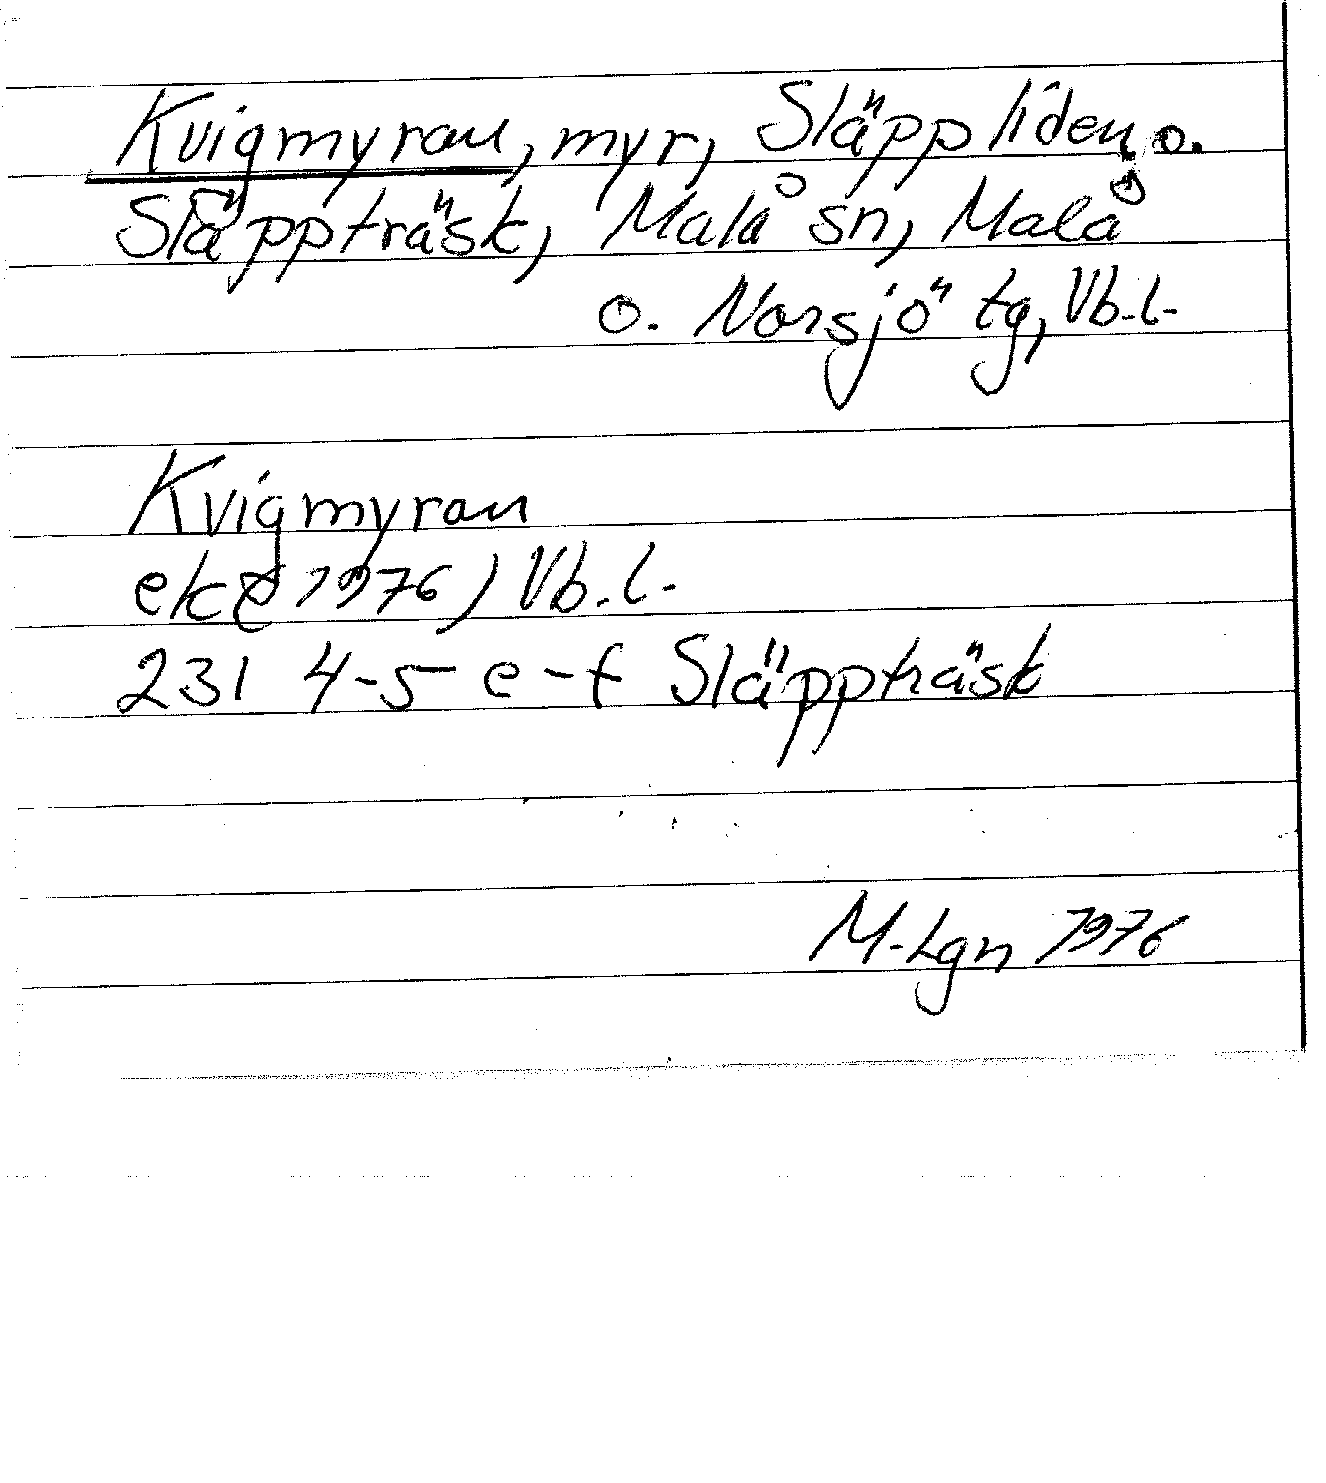 Kvigmyran, myr, Släppliden o.
Släppträsk, Malå sn, Malå
o. Norsjö tg, Vb.l.
Kvigmyran
ek(1976) Vb.l.
231 4-5 e-f Släppträsk
M-Lgn 1976